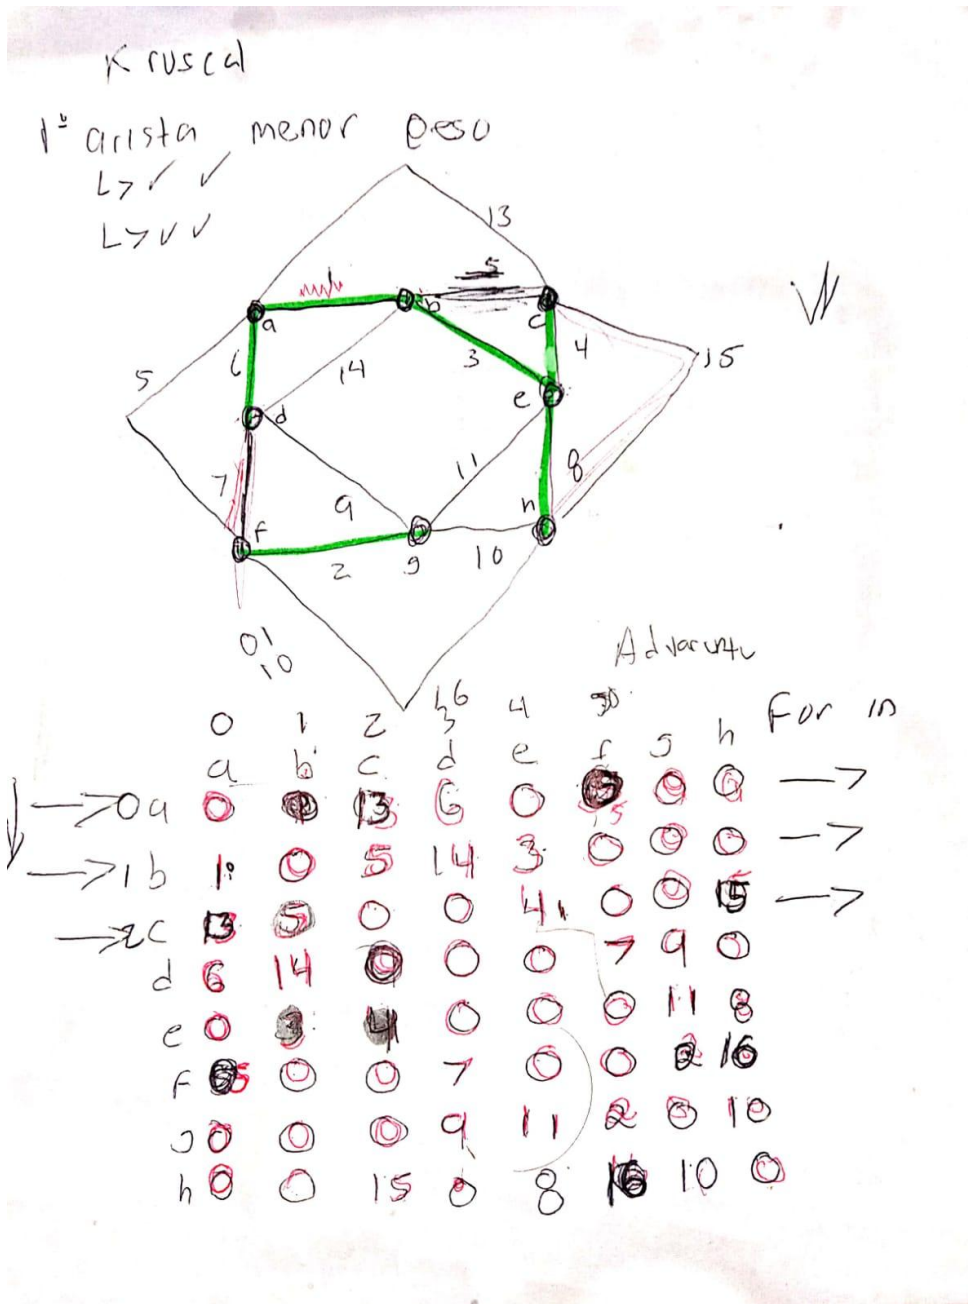 Kruscal
1º arista menor peso
L> ✓ ✓
L> ✓ ✓
13
5
a
b
c
6
14
3
4
15
5
d
e
7
9
11
8
f
2
g
10
h
01
10
16
For in
0 1 2 3 4
a b c d e f g h
→ 0 a 0 1 13 6 0 5 0 0 →
→ 1 b 1 0 5 14 3 0 0 0 →
→ 2 c 13 5 0 0 4 0 0 15 →
d 6 14 0 0 0 7 9 0
e 0 3 4 0 0 0 11 8
f 5 0 0 7 0 0 2 16
g 0 0 0 9 11 2 0 10
h 0 0 15 0 8 16 10 0